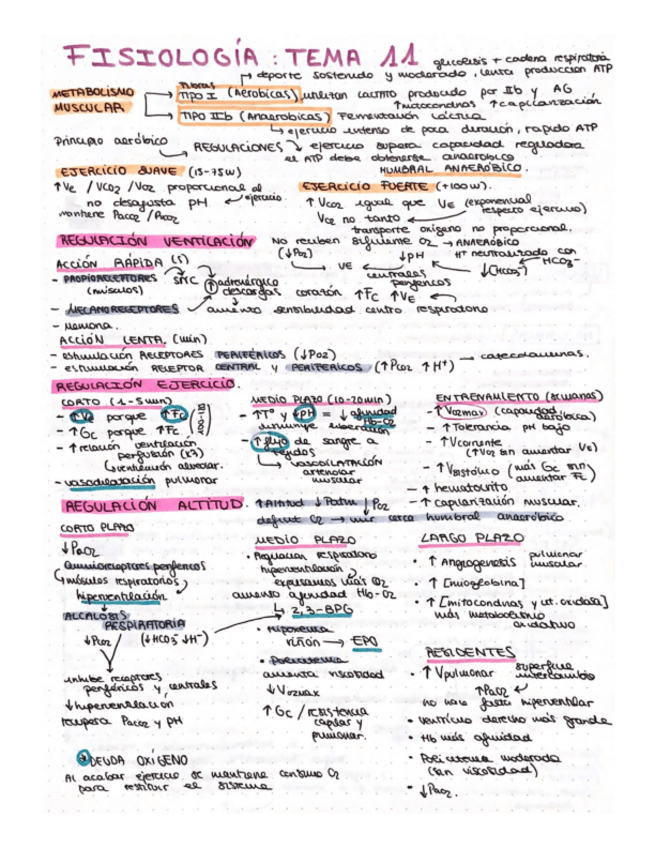 FISIOLOGÍA : TEMA 11
glucolisis + cadena respiratoria
→ deporte sostenido y moderado, lenta producción ATP
METABOLISMO MUSCULAR
Fibras
TIPO I (Aeróbicas) utilizan lactato producido por IIb y AG
↑mitocondrias ↑capilarización
TIPO IIb (Anaeróbicas) Fermentación láctica
→ ejercicio intenso de poca duración, rápido ATP
Principio aeróbico
→ REGULACIONES → ejercicio supera capacidad reguladora
el ATP debe obtenerse anaerobico
HUMBRAL ANAERÓBICO.
EJERCICIO SUAVE (15-75W)
↑Ve / VCO2 / VO2 proporcional al ejercicio.
no desajusta pH
mantiene PaCO2 / PaO2
EJERCICIO FUERTE (+100W).
↑ VCO2 igual que VE (exponencial respecto ejercicio)
VO2 no tanto
transporte oxígeno no proporcional.
REGULACIÓN VENTILACIÓN
No reciben suficiente O2 → ANAERÓBICO
(↓PO2)
↓pH
H+ neutralizado con HCO3-
↓[HCO3-]
VE
centrales
periféricos
ACCIÓN RÁPIDA (s)
- PROPIOCEPTORES (músculos)
SNC
↑ adrenérgico
descargas
corazón ↑Fc ↑VE
- MECANORECEPTORES → aumento sensibilidad centro respiratorio
- Memoria.
ACCIÓN LENTA. (min)
- estimulación RECEPTORES PERIFÉRICOS (↓PO2)
- estimulación RECEPTOR CENTRAL y PERIFÉRICOS (↑PCO2 ↑H+) → catecolaminas.
REGULACIÓN EJERCICIO.
CORTO (1-5min)
- ↑Ve porque ↑Fc
- ↑Gc porque ↑Fc
- ↑relación ventilación perfusión (x3)
ventilación alveolar.
- vasodilatación pulmonar
MEDIO PLAZO (10-20min)
- ↑T° y ↓pH = ↓ afinidad Hb-O2
- ↑flujo de sangre a tejidos
→ VASODILATACIÓN arteriolar muscular
ENTRENAMIENTO (semanas)
- ↑VO2max (capacidad aeróbica)
- ↑Tolerancia pH bajo
- ↑Vcorriente
(↑VO2 sin aumentar VE)
- ↑Vsistólico (más Gc sin aumentar Fc)
- ↑ hematocrito
- ↑ capilarización muscular.
REGULACIÓN ALTITUD.
↑Altitud ↓Patm ↓PO2
déficit O2 → vivir cerca humbral anaeróbico
CORTO PLAZO
↓PaO2
Quimiorreceptores periféricos
(músculos respiratorios)
hiperventilación
ALCALOSIS RESPIRATORIA
↓PCO2 (↓HCO3- ↓H+)
inhibe receptores periféricos y centrales
↓hiperventilación
recupera PaCO2 y pH
MEDIO PLAZO
• Regulación respiratoria
hiperventilación
expulsamos más CO2
aumento afinidad Hb-O2
→ 2,3-BPG
• Hipoxemia
riñón → EPO
• Policitemia
aumenta viscosidad
↓VO2max
↑Gc / resistencia capilar y pulmonar.
LARGO PLAZO
• ↑ Angiogénesis pulmonar muscular
• ↑ [mioglobina]
• ↑ [mitocondrias y cit. oxidasa]
más metabolismo oxidativo
RESIDENTES
• ↑ Vpulmonar superficie intercambio
↑PaO2
no hace falta hiperventilar
• Ventrículo derecho más grande
• Hb más afinidad
• Policitemia moderada
(sin viscosidad)
• ↓PaO2.
DEUDA OXÍGENO
Al acabar ejercicio se mantiene consumo O2
para restituir el sistema